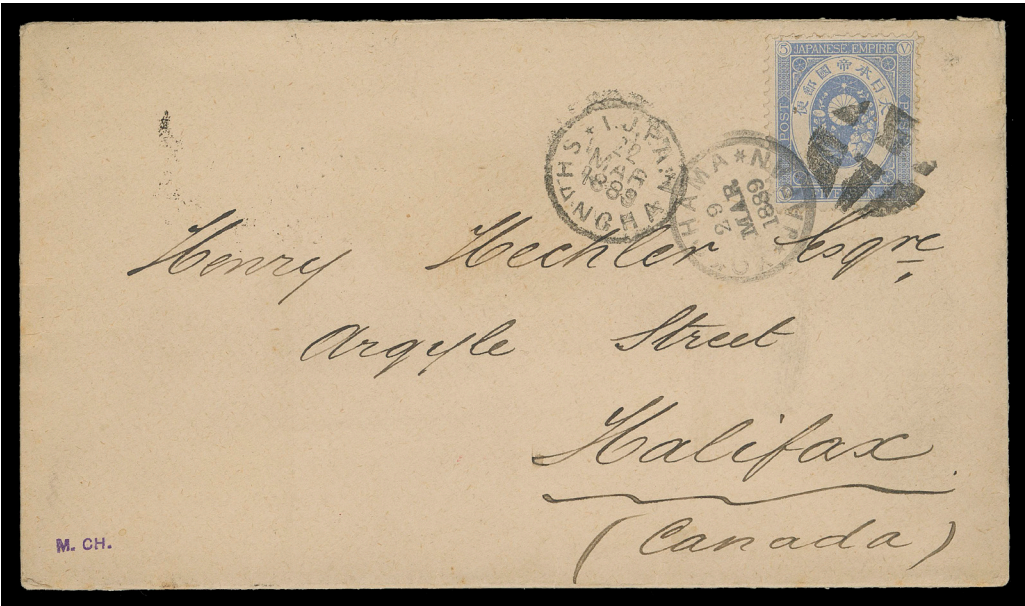 5 JAPANESE EMPIRE V
大日本帝國郵便
POST
I.J.P.A.
22
MAR
1889
SHANGHAI
YOKOHAMA * JAPAN *
29
MAR
1889
Henry Hechler Esqre,
Argyle Street
Halifax
(Canada)
M. CH.